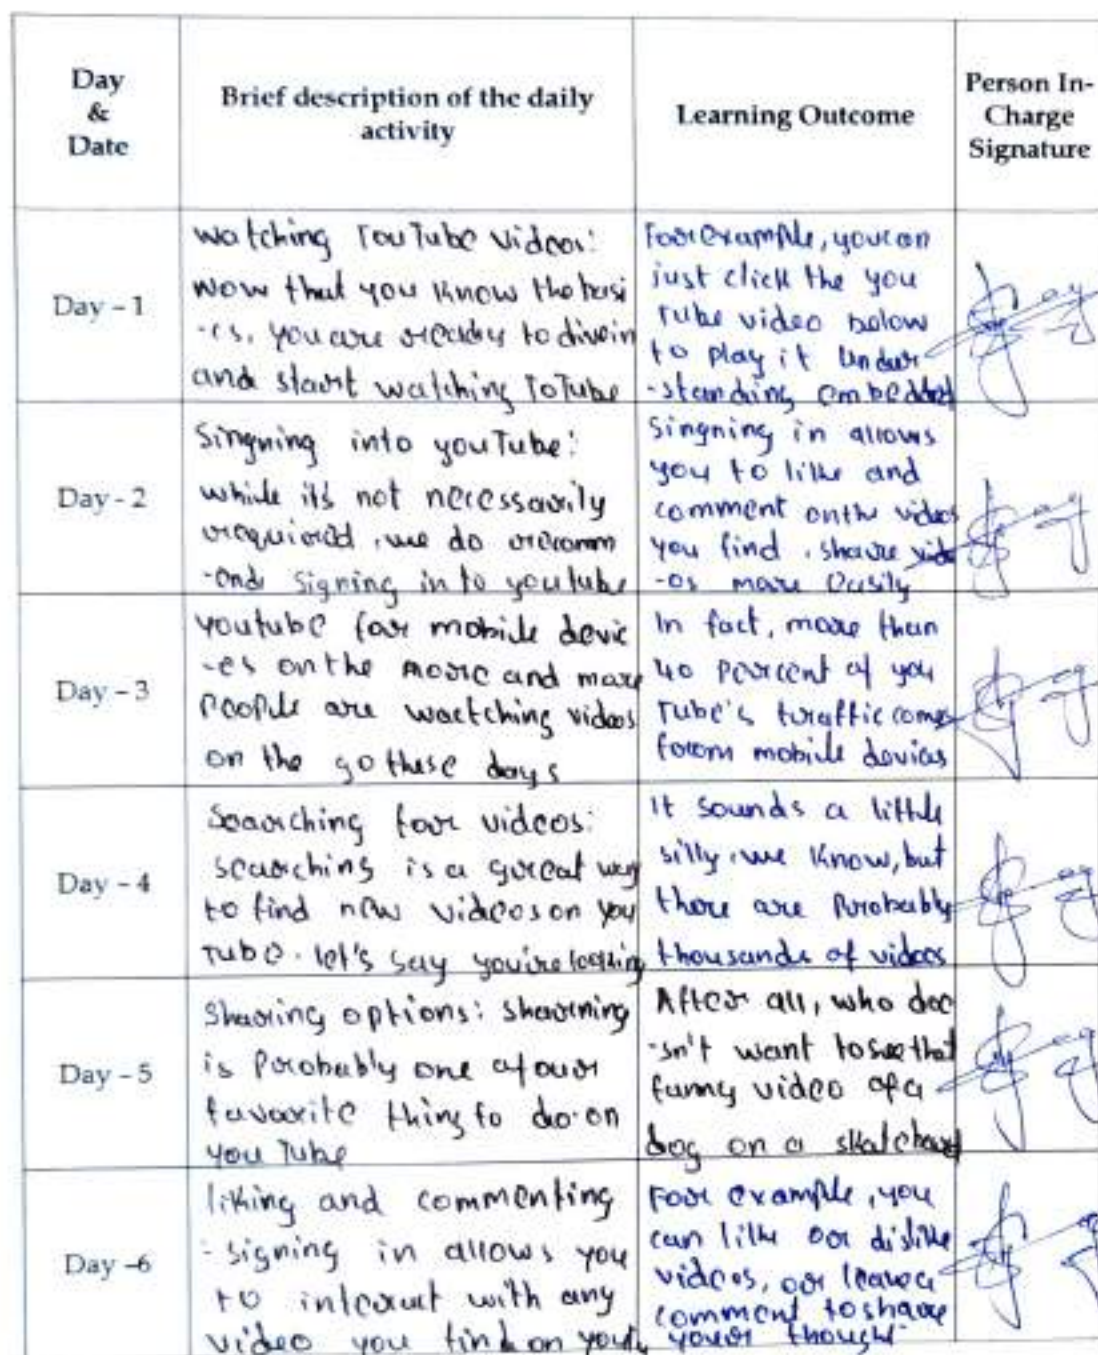 Day
&
Date
Brief description of the daily
activity
Learning Outcome
Person In-
Charge
Signature
Day - 1
Watching YouTube videos:
Now that you know the basi
-cs, you are ready to dive in
and start watching YoTube
For example, you can
just click the you
Tube video below
to play it Under
-standing embedded
Day - 2
Singning into youTube:
while it's not necessarily
required, we do recomm
-end signing in to youtube
Singning in allows
you to like and
comment on the videos
you find, share vide
-os more easily
Day - 3
youtube for mobile devic
-es on the more and more
people are wactching videos
on the go these days
In fact, more than
40 percent of you
Tube's traffic comes
from mobile devices
Day - 4
Searching for videos:
searching is a great way
to find new videos on you
Tube. let's say you're looking
It sounds a little
silly, we know, but
there are probably
thousands of videos
Day - 5
Sharing options: sharning
is probably one of our
favorite thing to do on
you Tube
After all, who doe
-sn't want to see that
funny video of a
dog on a
Day -6
liking and commenting
- signing in allows you
to interact with any
video you find on
For example, you
can like or dislike
videos, or leave a
comment to share
your thought